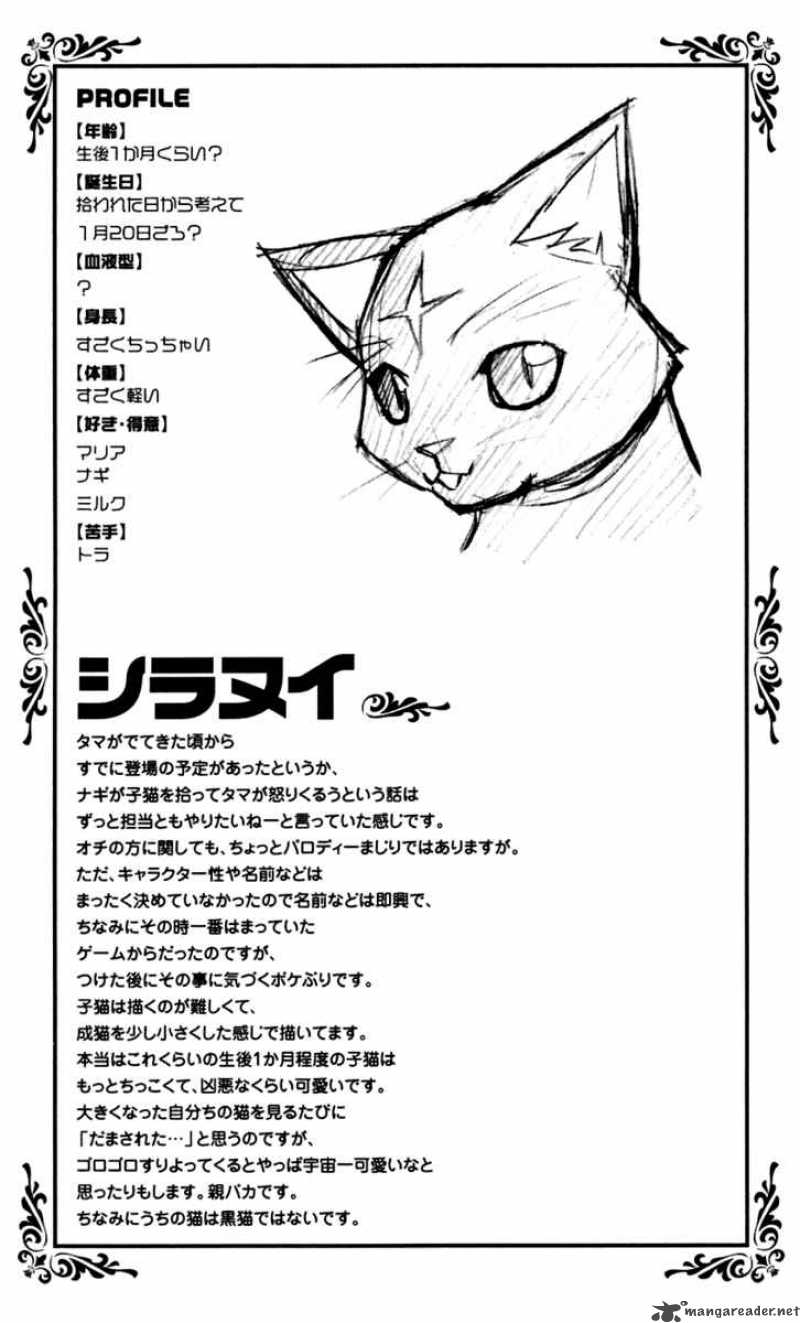 PROFILE
【年齢】
生後1か月くらい?
【誕生日】
拾われた日から考えて
1月20日ごろ?
【血液型】
?
【身長】
すごくちっちゃい
【体重】
すごく軽い
【好き・得意】
マリア
ナギ
ミルク
【苦手】
トラ
シラヌイ
タマがでてきた頃から
すでに登場の予定があったというか、
ナギが子猫を拾ってタマが怒りくるうという話は
ずっと担当ともやりたいねーと言っていた感じです。
オチの方に関しても、ちょっとパロディーまじりではありますが。
ただ、キャラクター性や名前などは
まったく決めていなかったので名前などは即興で、
ちなみにその時一番はまっていた
ゲームからだったのですが、
つけた後にその事に気づくボケぶりです。
子猫は描くのが難しくて、
成猫を少し小さくした感じで描いてます。
本当はこれくらいの生後1か月程度の子猫は
もっとちっこくて、凶悪なくらい可愛いです。
大きくなった自分ちの猫を見るたびに
「だまされた…」と思うのですが、
ゴロゴロすりよってくるとやっぱ宇宙一可愛いなと
思ったりもします。親バカです。
ちなみにうちの猫は黒猫ではないです。
mangareader.net